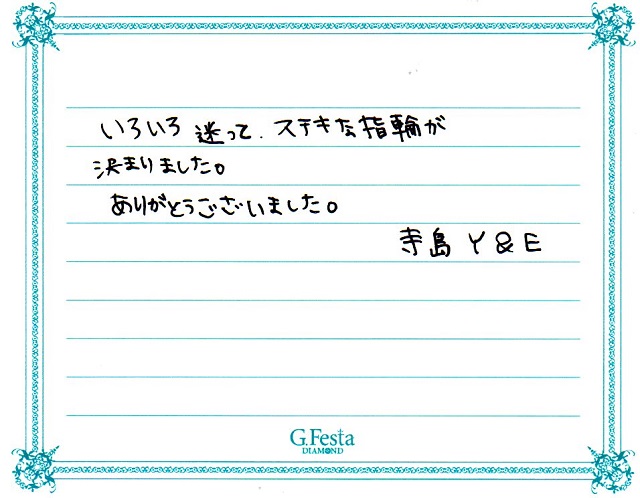 いろいろ迷って、ステキな指輪が
決まりました。
ありがとうございました。
寺島 Y & E
G.Festa
DIAMOND